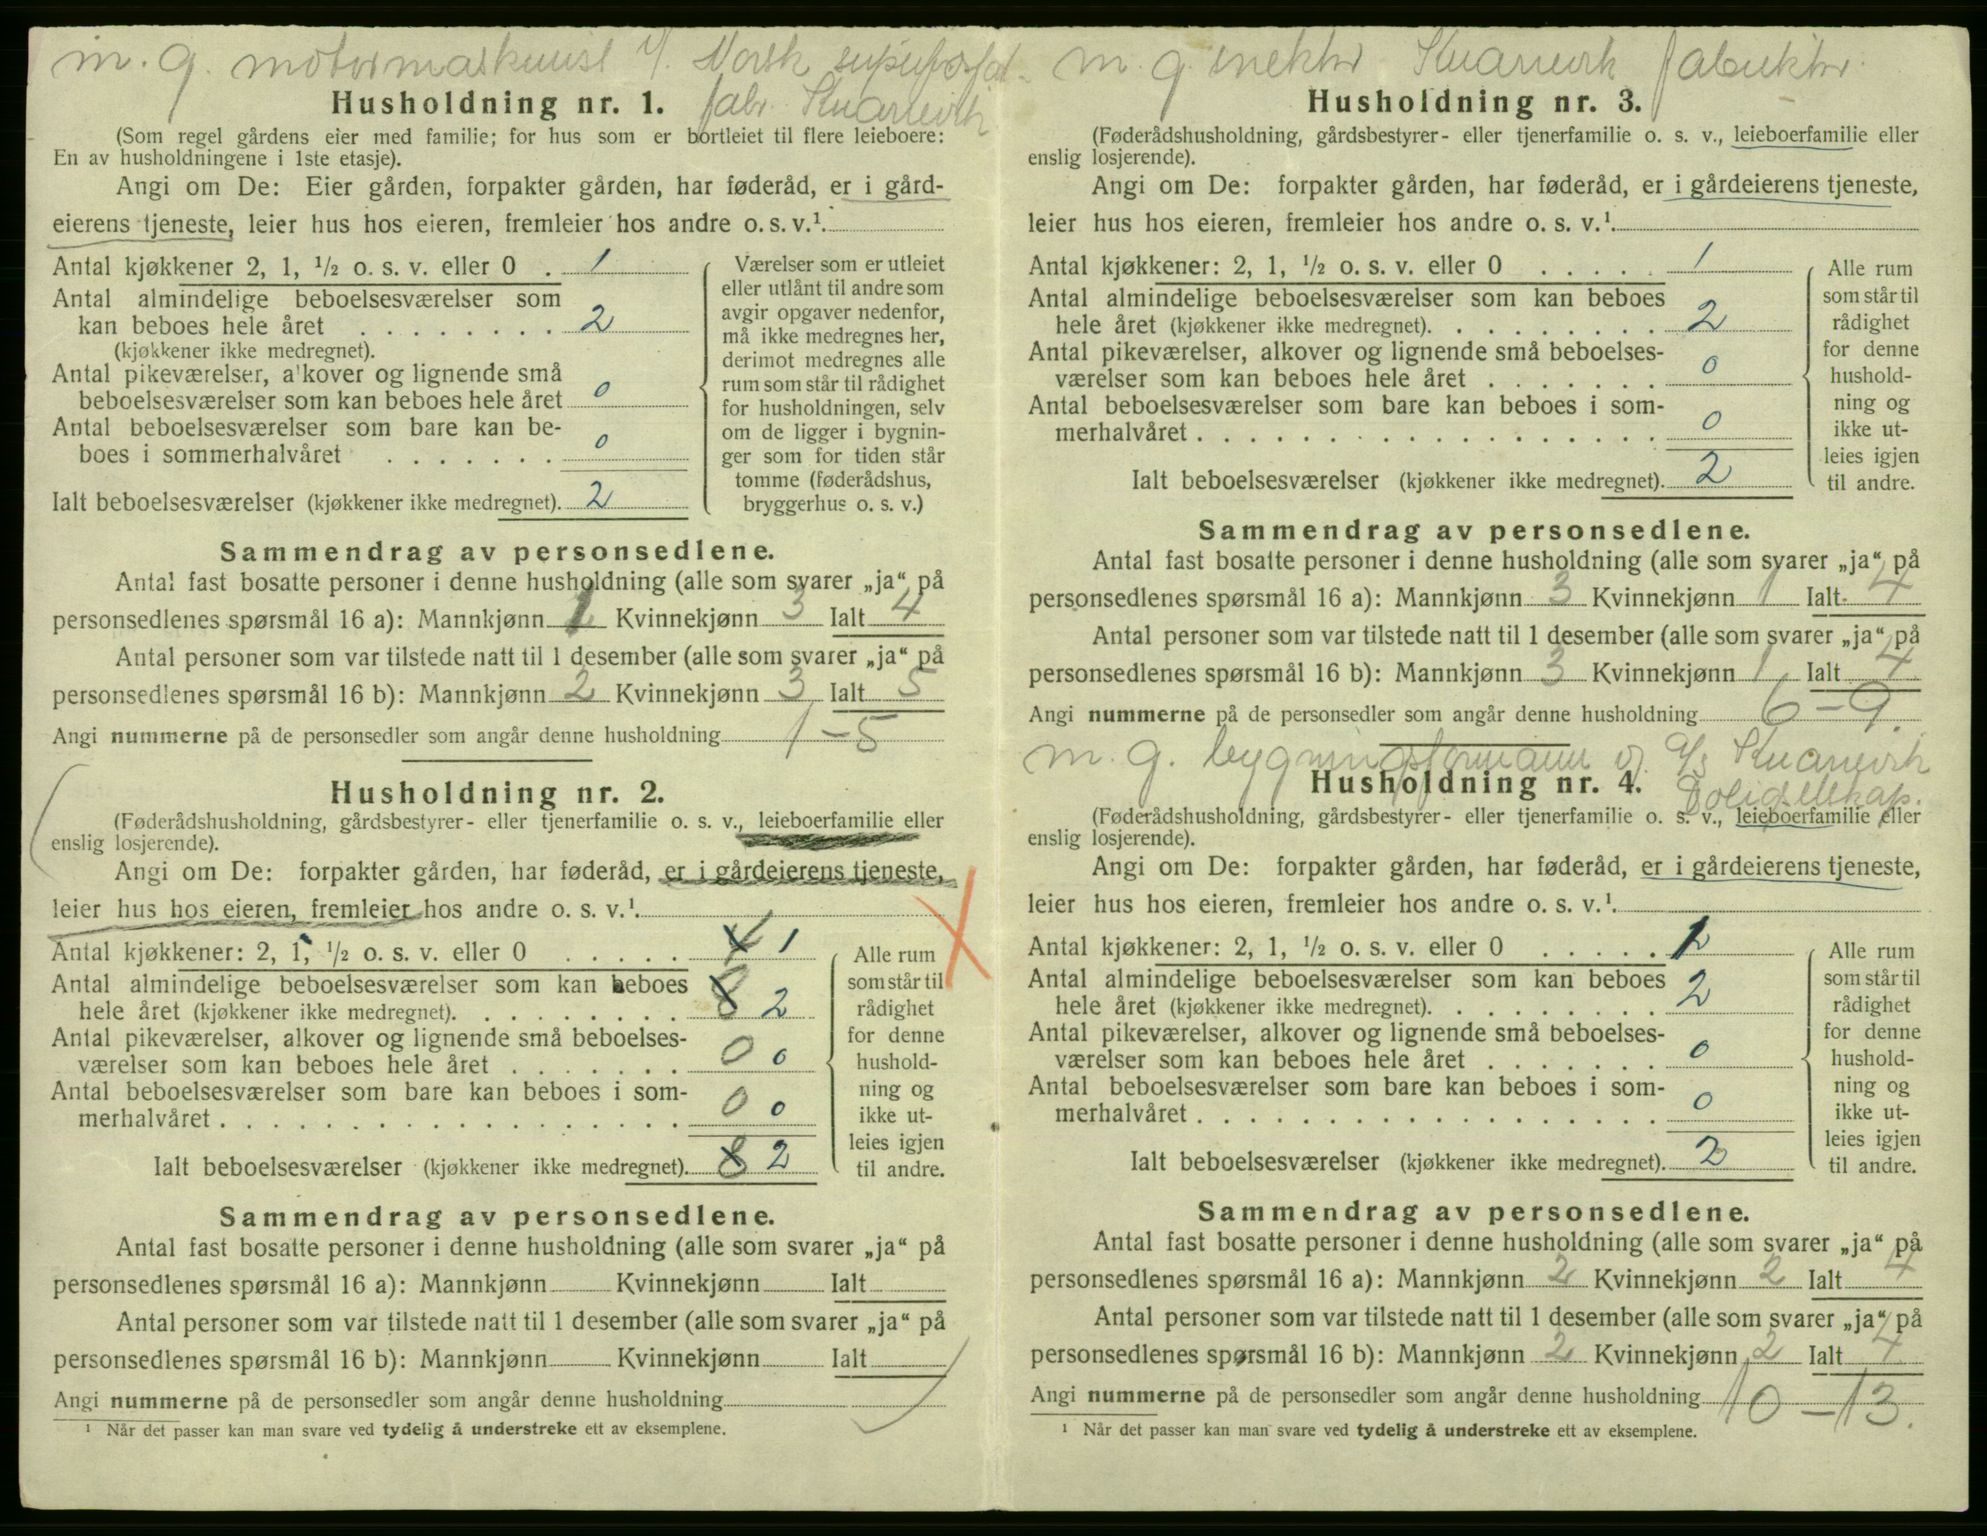 m. g. motormaskinist v/ Norsk
fabr. Knarrevik
Husholdning nr. 1.
(Som regel gårdens eier med familie; for hus som er bortleiet til flere leieboere:
En av husholdningene i 1ste etasje).
Angi om De: Eier gården, forpakter gården, har føderåd, er i gård-
eierens tjeneste, leier hus hos eieren, fremleier hos andre o. s. v.¹
Antal kjøkkener 2, 1, ½ o. s. v. eller 0 . 1
Antal almindelige beboelsesværelser som
kan beboes hele året . . . . . . . . 2
(kjøkkener ikke medregnet).
Antal pikeværelser, alkover og lignende små
beboelsesværelser som kan beboes hele året 0
Antal beboelsesværelser som bare kan be-
boes i sommerhalvåret . . . . . . . 0
Ialt beboelsesværelser (kjøkkener ikke medregnet). 2
Værelser som er utleiet
eller utlånt til andre som
avgir opgaver nedenfor,
må ikke medregnes her,
derimot medregnes alle
rum som står til rådighet
for husholdningen, selv
om de ligger i bygnin-
ger som for tiden står
tomme (føderådshus,
bryggerhus o. s. v.)
Sammendrag av personsedlene.
Antal fast bosatte personer i denne husholdning (alle som svarer „ja“ på
personsedlenes spørsmål 16 a): Mannkjønn 1 Kvinnekjønn 3 Ialt 4
Antal personer som var tilstede natt til 1 desember (alle som svarer „ja“ på
personsedlenes spørsmål 16 b): Mannkjønn 2 Kvinnekjønn 3 Ialt 5
Angi nummerne på de personsedler som angår denne husholdning 1 – 5
Husholdning nr. 2.
(Føderådshusholdning, gårdsbestyrer- eller tjenerfamilie o. s. v., leieboerfamilie eller
enslig losjerende).
Angi om De: forpakter gården, har føderåd, er i gårdeierens tjeneste,
leier hus hos eieren, fremleier hos andre o. s. v.¹
Antal kjøkkener: 2, 1, ½ o. s. v. eller 0 . . . . . 4 1
Antal almindelige beboelsesværelser som kan beboes
hele året (kjøkkener ikke medregnet). . . . . . . . . 8 2
Antal pikeværelser, alkover og lignende små beboelses-
værelser som kan beboes hele året . . . . . . . 0 0
Antal beboelsesværelser som bare kan beboes i som-
merhalvåret . . . . . . . . . . . . . . . . . . 0 0
Ialt beboelsesværelser (kjøkkener ikke medregnet). 8 2
Alle rum
som står til
rådighet
for denne
hushold-
ning og
ikke ut-
leies igjen
til andre.
Sammendrag av personsedlene.
Antal fast bosatte personer i denne husholdning (alle som svarer „ja“ på
personsedlenes spørsmål 16 a): Mannkjønn Kvinnekjønn Ialt
Antal personer som var tilstede natt til 1 desember (alle som svarer „ja“ på
personsedlenes spørsmål 16 b): Mannkjønn Kvinnekjønn Ialt
Angi nummerne på de personsedler som angår denne husholdning
¹ Når det passer kan man svare ved tydelig å understreke ett av eksemplene.
m. g. Knarrevik fabrikker
Husholdning nr. 3.
(Føderådshusholdning, gårdsbestyrer- eller tjenerfamilie o. s. v., leieboerfamilie eller
enslig losjerende).
Angi om De: forpakter gården, har føderåd, er i gårdeierens tjeneste,
leier hus hos eieren, fremleier hos andre o. s. v.¹
Antal kjøkkener: 2, 1, ½ o. s. v. eller 0 . . . . . 1
Antal almindelige beboelsesværelser som kan beboes
hele året (kjøkkener ikke medregnet). . . . . . . . . 2
Antal pikeværelser, alkover og lignende små beboelses-
værelser som kan beboes hele året . . . . . . . 0
Antal beboelsesværelser som bare kan beboes i som-
merhalvåret . . . . . . . . . . . . . . . . . . 0
Ialt beboelsesværelser (kjøkkener ikke medregnet). 2
Alle rum
som står til
rådighet
for denne
hushold-
ning og
ikke ut-
leies igjen
til andre.
Sammendrag av personsedlene.
Antal fast bosatte personer i denne husholdning (alle som svarer „ja“ på
personsedlenes spørsmål 16 a): Mannkjønn 3 Kvinnekjønn 1 Ialt 4
Antal personer som var tilstede natt til 1 desember (alle som svarer „ja“ på
personsedlenes spørsmål 16 b): Mannkjønn 3 Kvinnekjønn 1 Ialt 4
Angi nummerne på de personsedler som angår denne husholdning 6 – 9.
m. g. bygningsformann v. A/S Knarrevik
Boligselskap.
Husholdning nr. 4.
(Føderådshusholdning, gårdsbestyrer- eller tjenerfamilie o. s. v., leieboerfamilie eller
enslig losjerende).
Angi om De: forpakter gården, har føderåd, er i gårdeierens tjeneste,
leier hus hos eieren, fremleier hos andre o. s. v.¹
Antal kjøkkener: 2, 1, ½ o. s. v. eller 0 . . . . . 1
Antal almindelige beboelsesværelser som kan beboes
hele året (kjøkkener ikke medregnet). . . . . . . . . 2
Antal pikeværelser, alkover og lignende små beboelses-
værelser som kan beboes hele året . . . . . . . 0
Antal beboelsesværelser som bare kan beboes i som-
merhalvåret . . . . . . . . . . . . . . . . . . 0
Ialt beboelsesværelser (kjøkkener ikke medregnet). 2
Alle rum
som står til
rådighet
for denne
hushold-
ning og
ikke ut-
leies igjen
til andre.
Sammendrag av personsedlene.
Antal fast bosatte personer i denne husholdning (alle som svarer „ja“ på
personsedlenes spørsmål 16 a): Mannkjønn 2 Kvinnekjønn 2 Ialt 4
Antal personer som var tilstede natt til 1 desember (alle som svarer „ja“ på
personsedlenes spørsmål 16 b): Mannkjønn 2 Kvinnekjønn 2 Ialt 4
Angi nummerne på de personsedler som angår denne husholdning 10 – 13.
¹ Når det passer kan man svare ved tydelig å understreke ett av eksemplene.